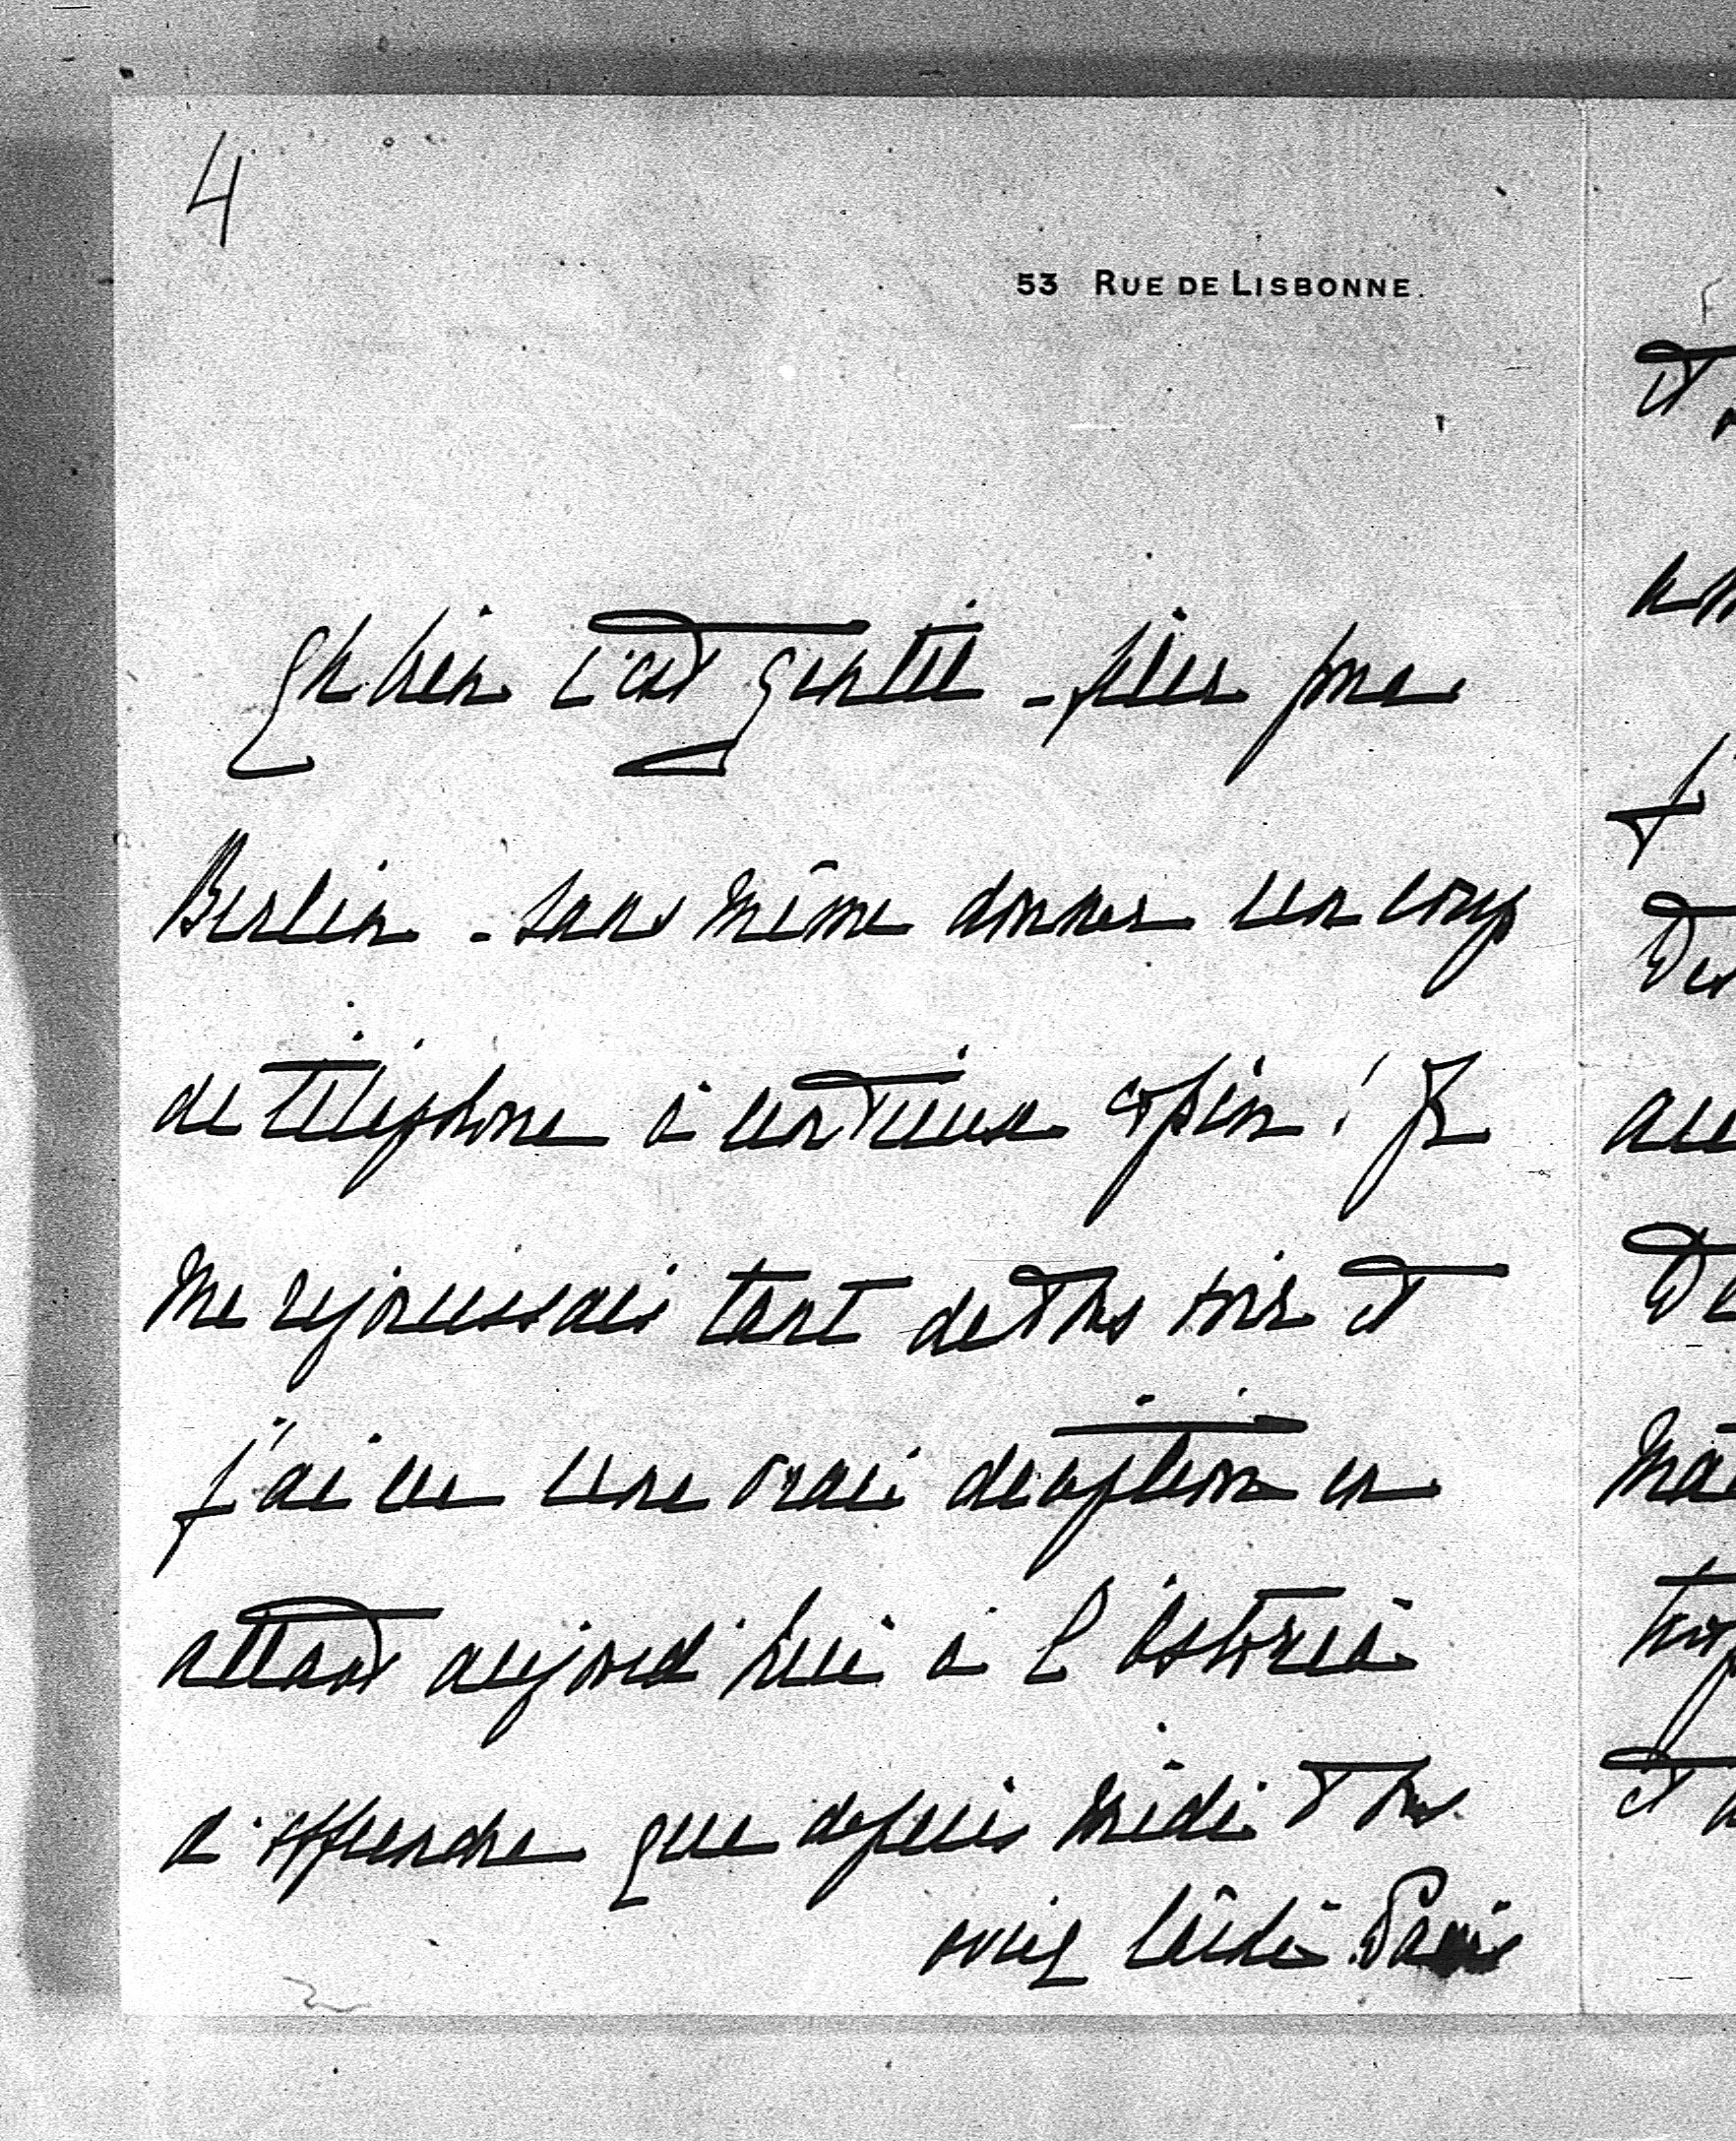 4
53 RUE DE LISBONNE.
Eh bien c'est gentil - filer pour
Berlin - sans même donner un coup
de téléphone à un vieux copin ! Je
me rejouissais tant de vous voir et
j'ai eu une vraie deception en
allant aujourd'hui à l'Astoria
d'apprendre que depuis midi vous
aviez quitté Paris